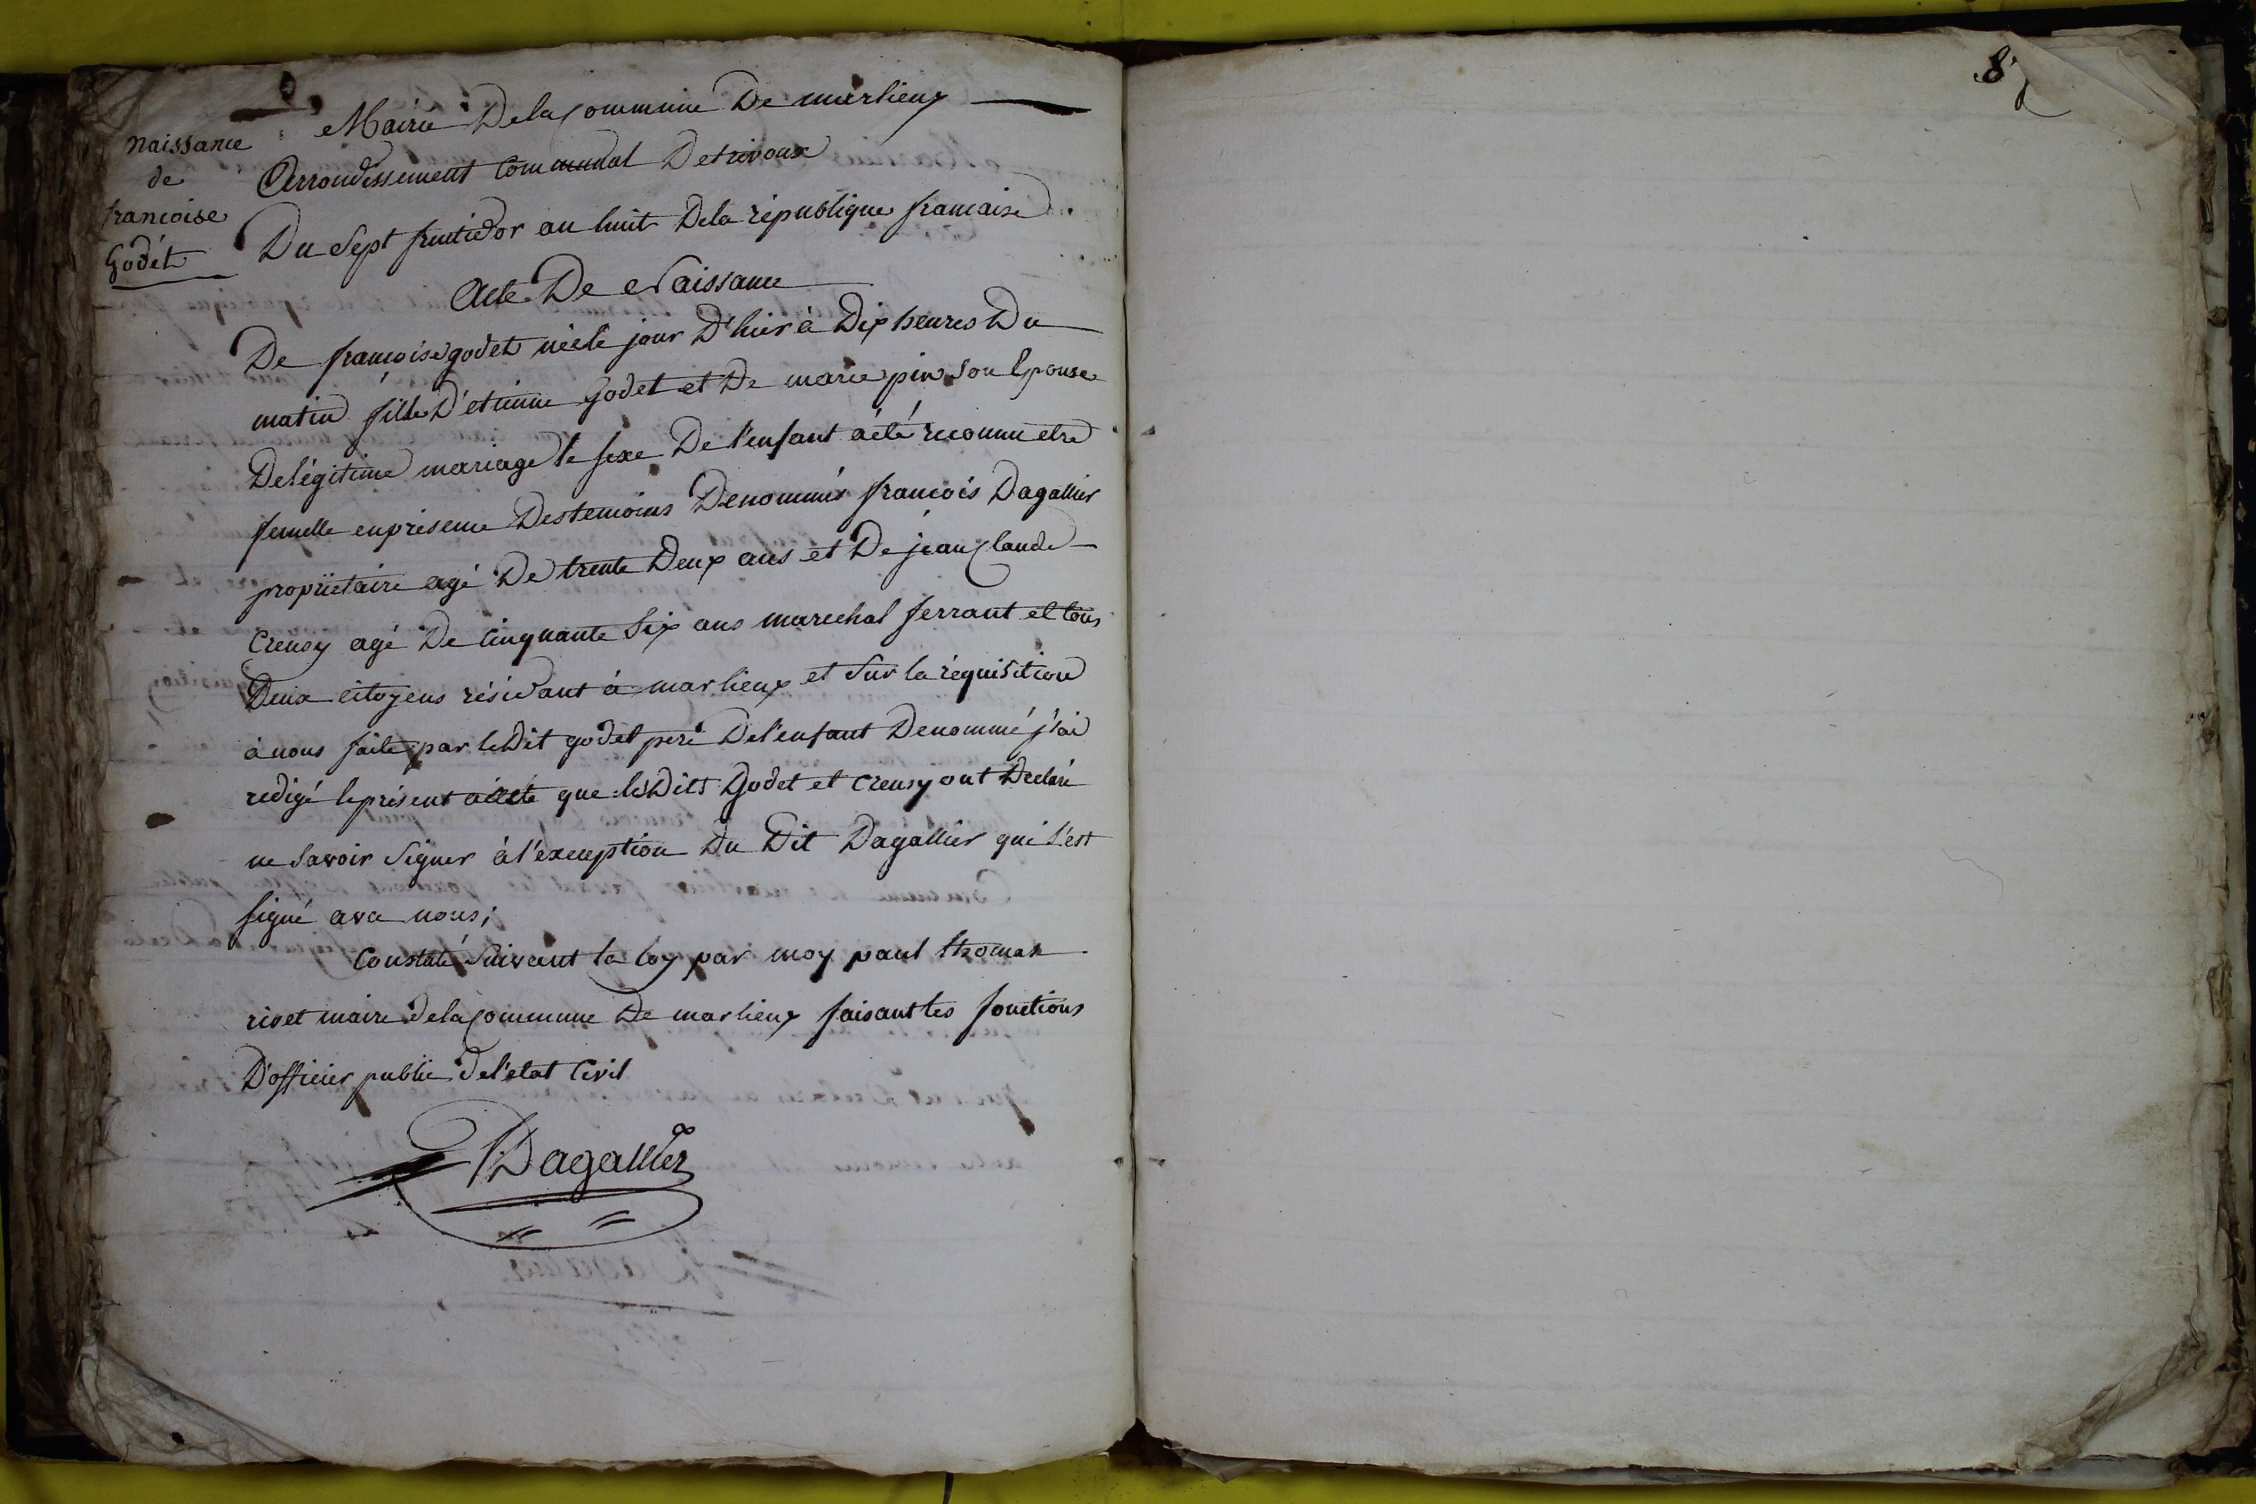 8
Mairie De la Commune De marlieux
naissance
de
francoise
Godét
Arrondissement Communal De trévoux
Du Sept fructidor an huit De la république francaise
Acte De Naissance
De françoise godet née le jour D'hier à Dix heures Du
matin fille D'etienne Godet et De marie pin son Epouse
De légitime mariage le sexe De l'enfant a été reconnu etre
femelle en présence Des temoins Denommés françois Dagallier
propriétaire agé De trente Deux ans et De jean Claude
Creusy agé De Cinquante Six ans marechal ferrant et tous
Deux citoyens résidant à marlieux et Sur la réquisition
à nous faite par le Dit godet pere De l'enfant Denommé j'ai
redigé le présent acte que les Dits Godet et Creusy ont Declaré
ne Savoir Signer à l'exception Du Dit Dagallier qui s'est
signé avec nous;
Constaté Suivant la loy par moy paul thomas
rivet maire de la Commune De marlieux faisant les fonctions
D'officier public de l'état Civil
Dagallier